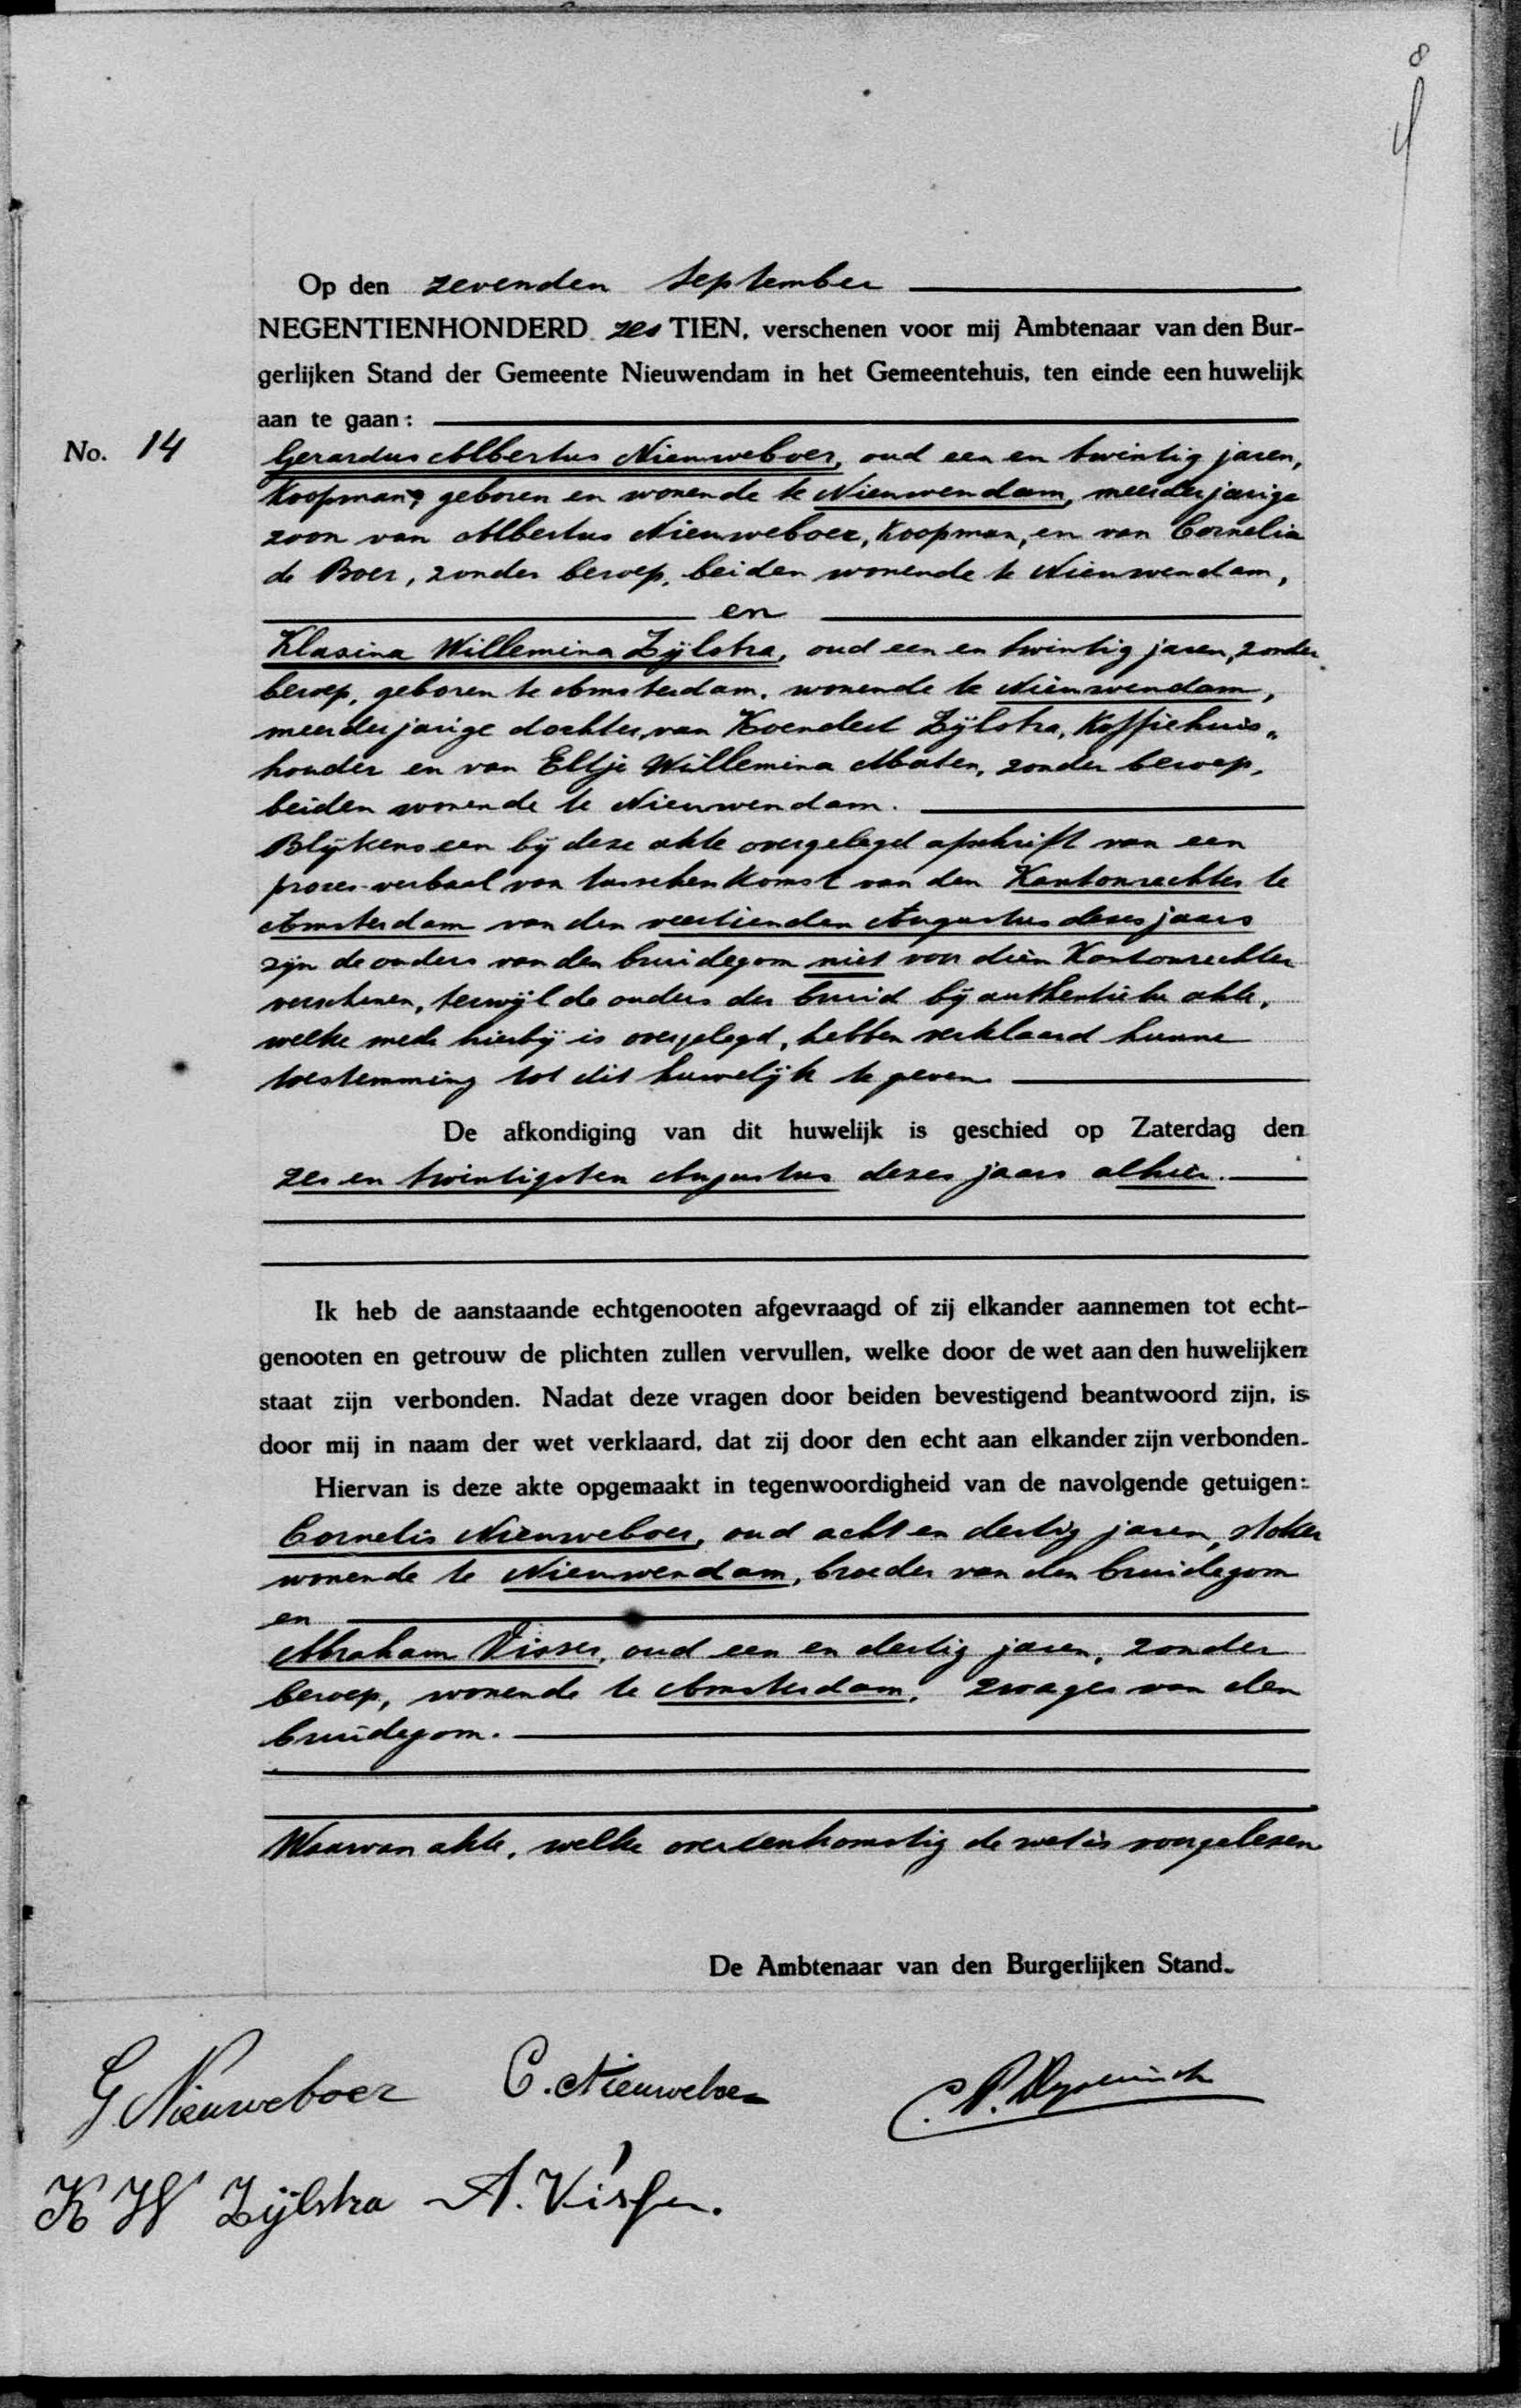 8
Op den zevenden September
NEGENTIENHONDERD zes TIEN, verschenen voor mij Ambtenaar van den Bur-
gerlijken Stand der Gemeente Nieuwendam in het Gemeentehuis, ten einde een huwelijk
aan te gaan:
No. 14
Gerardus Albertus Nieuweboer, oud een en twintig jaren,
Koopman, geboren en wonende te Nieuwendam, meerderjarige
zoon van Albertus Nieuweboer, Koopman, en van Cornelia
de Boer, zonder beroep, beiden wonende te Nieuwendam,
en
Klasina Willemina Zijlstra, oud een en twintig jaren, zonder
beroep, geboren te Amsterdam, wonende te Nieuwendam,
meerderjarige dochter van Koendert Zijlstra, Koffiehuis„
houder en van Eltje Willemina Maten, zonder beroep,
beiden wonende te Nieuwendam.
Blijkens een bij deze akte overgelegd afschrift van een
proces-verbaal van tusschenkomst van den Kantonrechter te
Amsterdam van den veertienden Augustus dezes jaars
zijn de ouders van den bruidegom niet voor dien Kantonrechter
verschenen, terwijl de ouders der bruid bij authentieke akte,
welke mede hierbij is overgelegd, hebben verklaard hunne
toestemming tot dit huwelijk te geven
De afkondiging van dit huwelijk is geschied op Zaterdag den
zes en twintigsten Augustus dezes jaars alhier.
Ik heb de aanstaande echtgenooten afgevraagd of zij elkander aannemen tot echt-
genooten en getrouw de plichten zullen vervullen, welke door de wet aan den huwelijken
staat zijn verbonden. Nadat deze vragen door beiden bevestigend beantwoord zijn, is
door mij in naam der wet verklaard, dat zij door den echt aan elkander zijn verbonden.
Hiervan is deze akte opgemaakt in tegenwoordigheid van de navolgende getuigen:
Cornelis Nieuweboer, oud acht en dertig jaren, stoker
wonende te Nieuwendam, broeder van den bruidegom
en
Abraham Visser, oud een en dertig jaren, zonder
beroep, wonende te Amsterdam, zwager van den
bruidegom.
Waarvan akte, welke overeenkomstig de wet is voorgelezen
De Ambtenaar van den Burgerlijken Stand.
G Nieuweboer C. Nieuweboer
K W Zijlstra A. Visser.